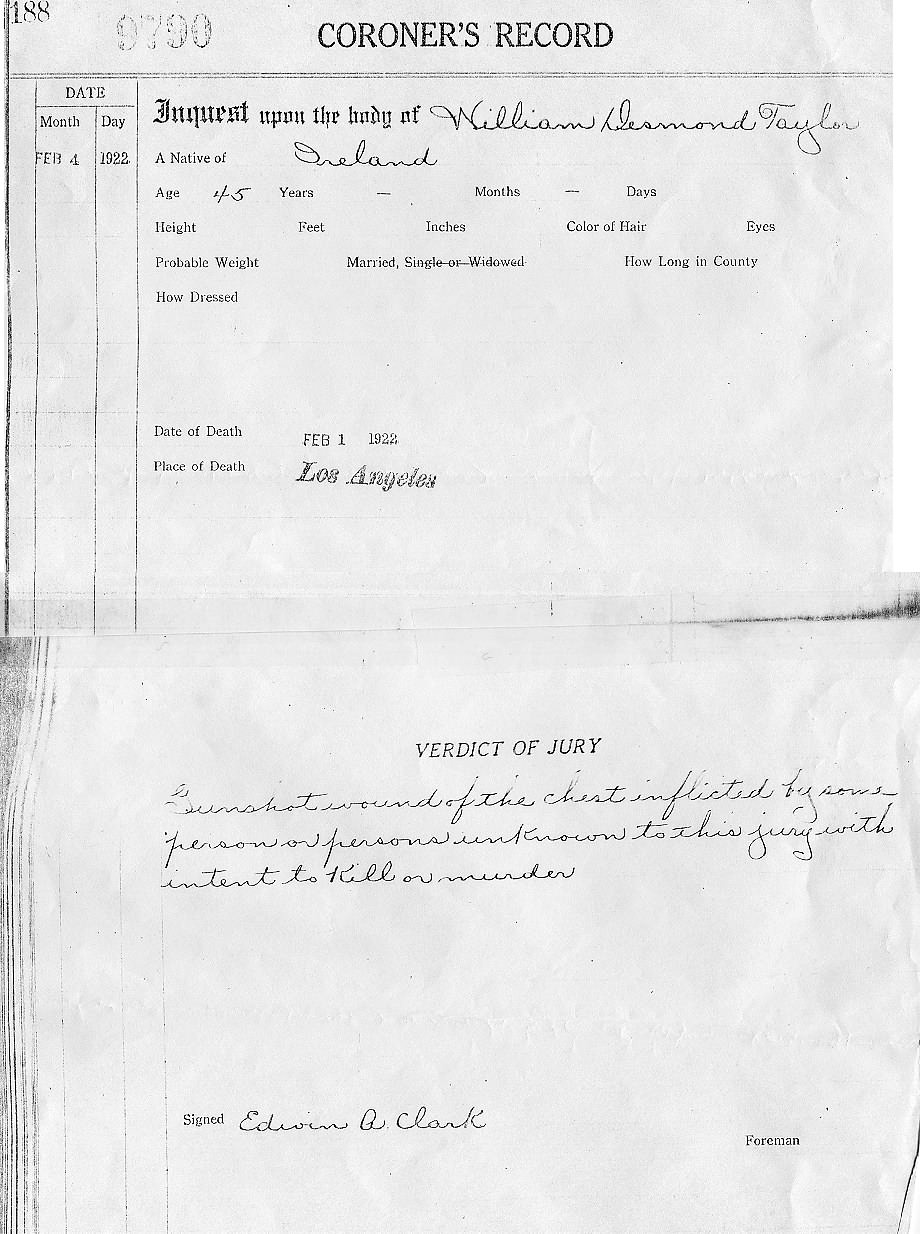 188
9790
CORONER'S RECORD
DATE
Month Day
FEB 4 1922
Inquest upon the body of William Desmond Taylor
A Native of Ireland
Age 45 Years — Months — Days
Height Feet Inches Color of Hair Eyes
Probable Weight Married, Single or Widowed How Long in County
How Dressed
Date of Death FEB 1 1922
Place of Death Los Angeles
VERDICT OF JURY
Gunshot wound of the chest inflicted by some
person or persons unknown to this jury with
intent to Kill or murder
Signed Edwin A. Clark
Foreman